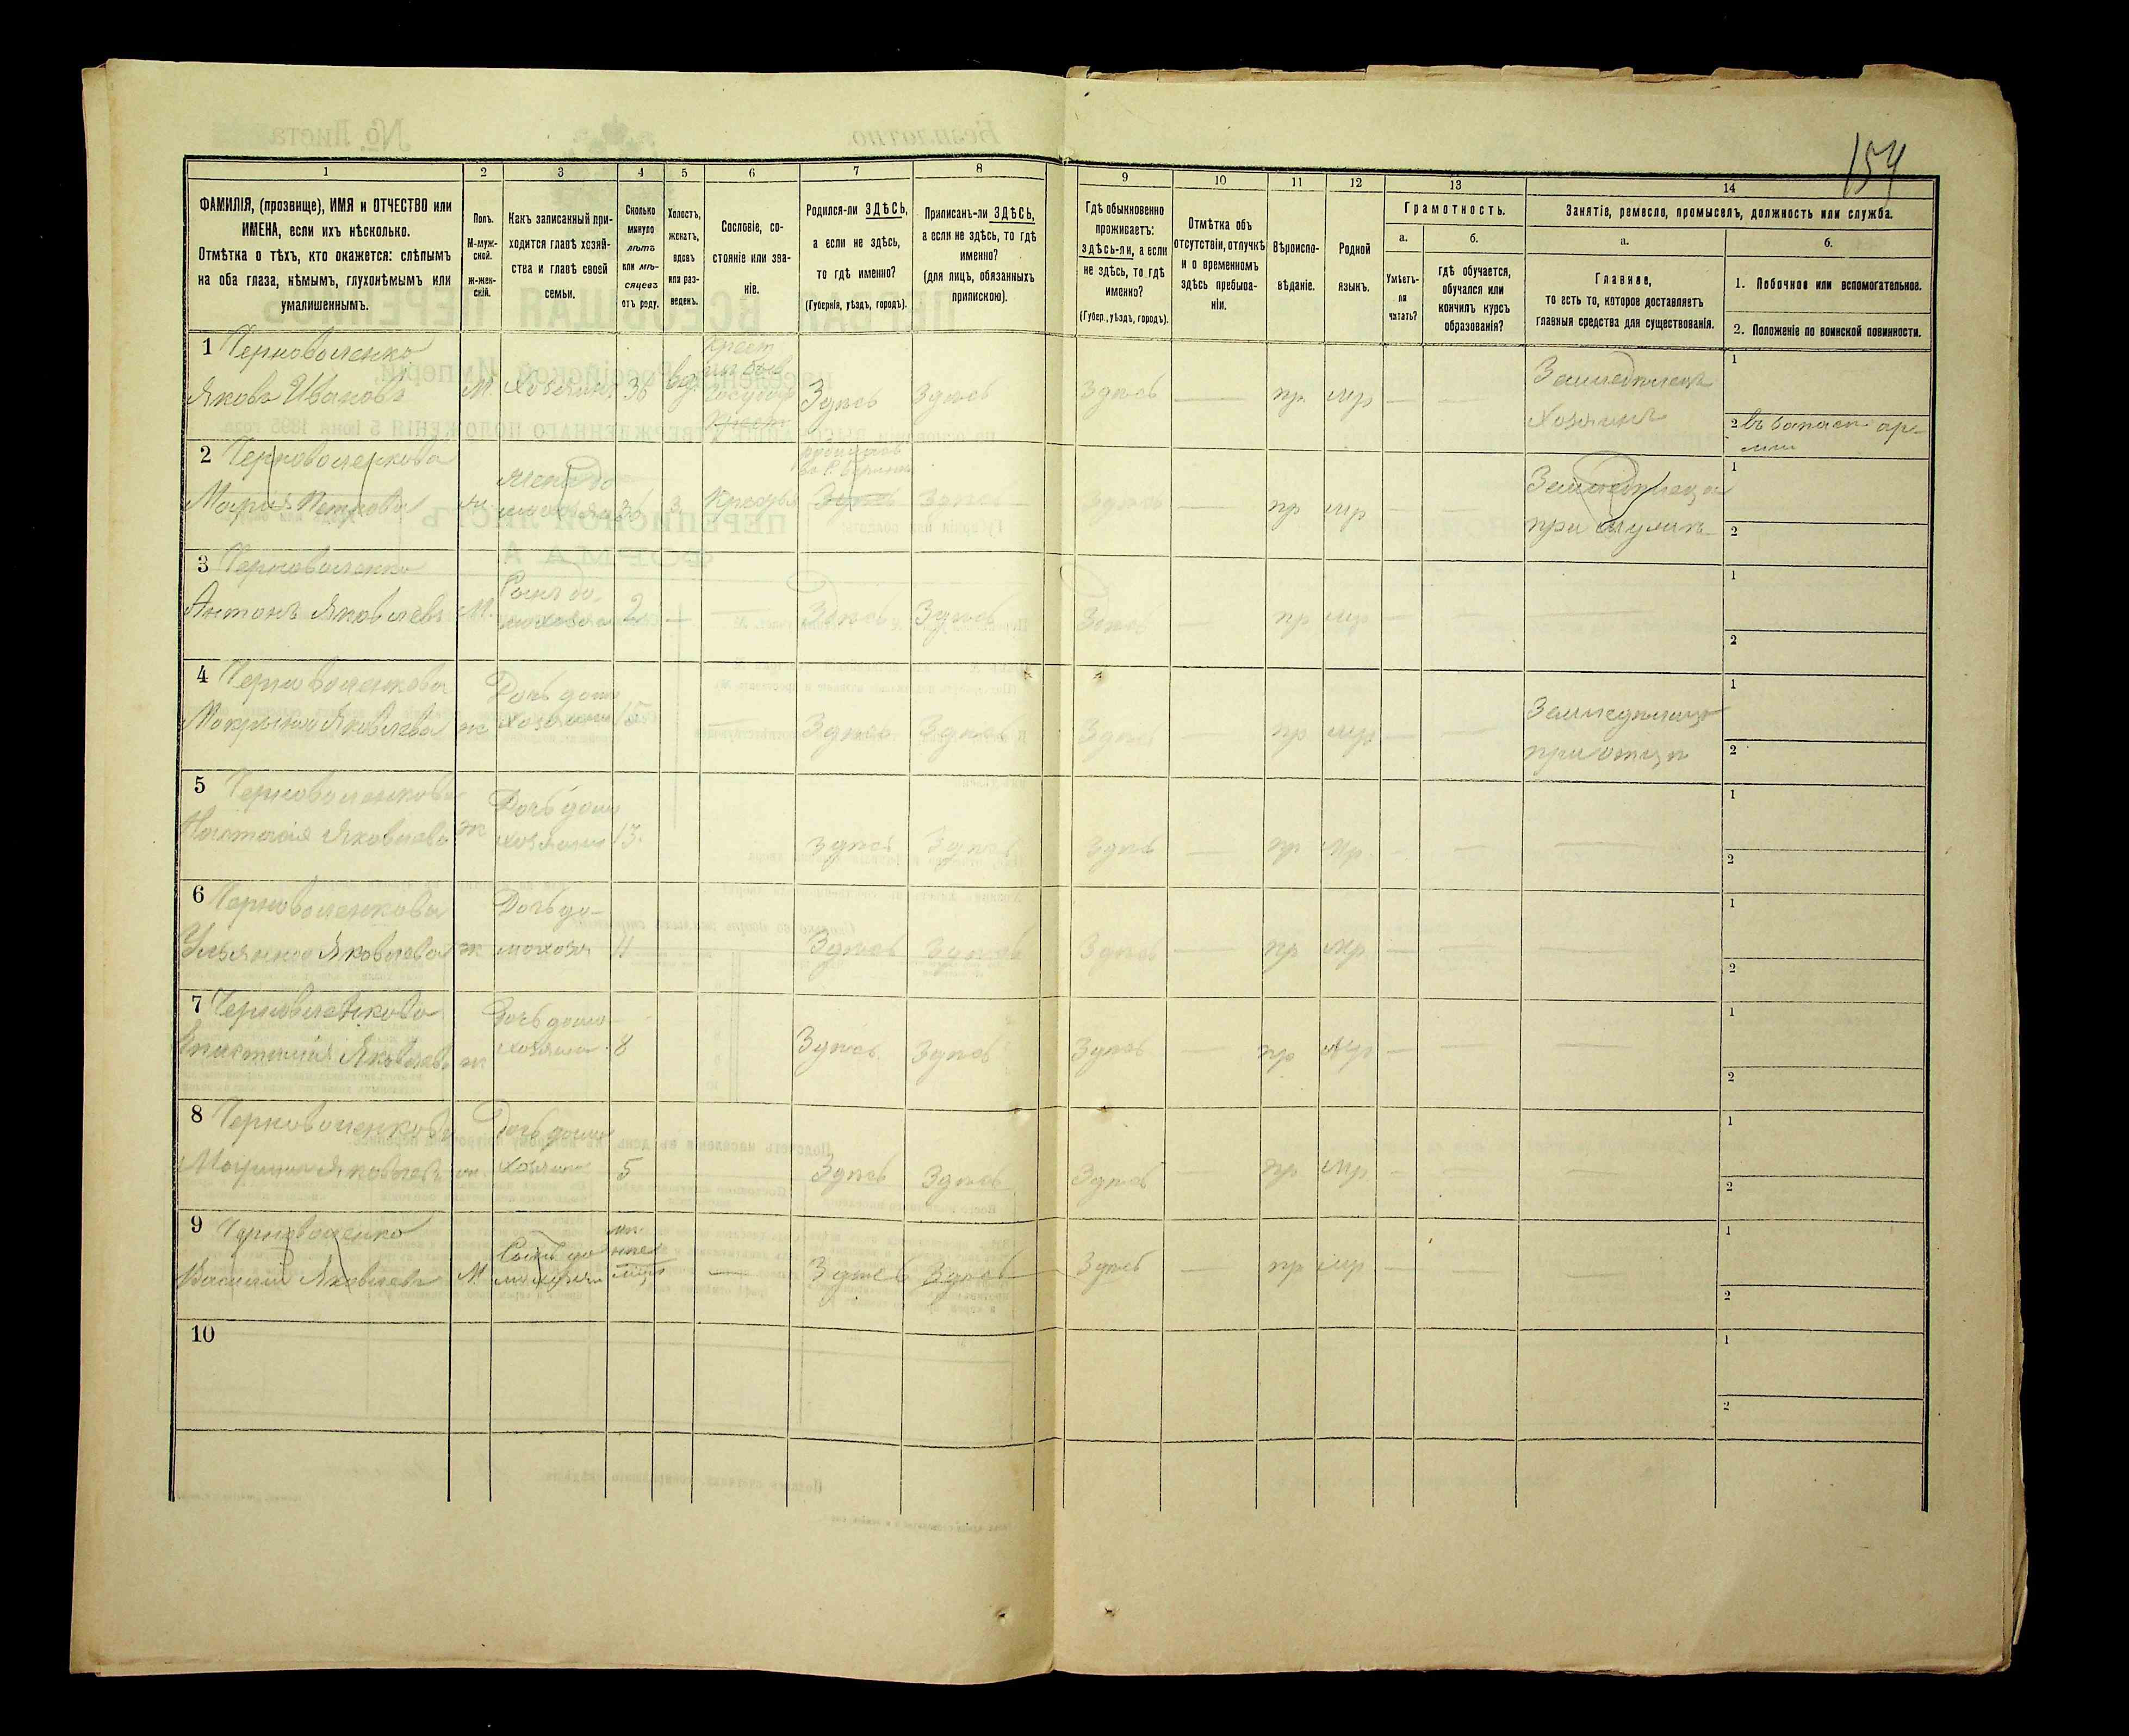 154
1
2
3
4
5
6
7
8
9
10
11
12
13
14
ФАМИЛІЯ, (прозвище), ИМЯ и ОТЧЕСТВО или
ИМЕНА, если ихъ нѣсколько.
Отмѣтка о тѣхъ, кто окажется: слѣпымъ
на оба глаза, нѣмымъ, глухонѣмымъ или
умалишеннымъ.
Полъ.
М-муж-
ской.
ж-жен-
скій.
Какъ записанный при-
ходится главѣ хозяй-
ства и главѣ своей
семьи.
Сколько
минуло
лѣтъ
или мѣ-
сяцевъ
отъ роду.
Холостъ,
женатъ,
вдовъ
или раз-
веденъ.
Сословіе, со-
стояніе или зва-
ніе.
Родился-ли ЗДѢСЬ,
а если не здѣсь,
то гдѣ именно?
(Губернія, уѣздъ, городъ).
Приписанъ-ли ЗДѢСЬ,
а если не здѣсь, то гдѣ
именно?
(для лицъ, обязанныхъ
припискою).
Гдѣ обыкновенно
проживаетъ:
здѣсь-ли, а если
не здѣсь, то гдѣ
именно?
(Губер., уѣздъ, городъ).
Отмѣтка объ
отсутствіи, отлучкѣ
и о временномъ
здѣсь пребыва-
ніи.
Вѣроиспо-
вѣданіе.
Родной
языкъ.
Грамотность.
а.
Умѣетъ-
ли
читать?
б.
гдѣ обучается,
обучался или
кончилъ курсъ
образованія?
Занятіе, ремесло, промыселъ, должность или служба.
а.
Главное,
то есть то, которое доставляетъ
главныя средства для существованія.
б.
1. Побочное или вспомогательное.
2. Положеніе по воинской повинности.
1 Черноволенко
Яковъ Ивановъ
М. Хозяинъ 36 вд
Крест
Здѣсь Здѣсь Здѣсь — пр мр — —
Земледѣлецъ
Хозяинъ
1
2 въ запасѣ ар-
міи
2 Черноволенкова
Марія Петрова
ж 36 з. Здѣсь Здѣсь Здѣсь — пр мр — —
Земледѣлица
при мужѣ
1
2
3 Черноволенко
Антонъ Яковлевъ
М. Сынъ до-
мохозяина 2 — — Здѣсь Здѣсь Здѣсь — пр мр — — —
1
2
4 Черноволенкова
Макрына Яковлева
ж Дочь домо
хозяина 15 — Здѣсь Здѣсь Здѣсь — пр мр — —
Земледѣлица
при отцѣ
1
2
5 Черноволенкова
Яковлева
ж Дочь домо
хозяина 13. Здѣсь Здѣсь Здѣсь — пр мр — — —
1
2
6 Черноволенкова
Ульяна Яковлева
ж Дочь до-
мохозя 11 — Здѣсь Здѣсь Здѣсь — пр мр — — —
1
2
7 Черноволенкова
Яковлева
ж Дочь домо-
хозяина 8 Здѣсь Здѣсь Здѣсь — пр мр — — —
1
2
8 Черноволенкова
Марина Яковлева
ж. Дочь домо
хозяина 5 Здѣсь Здѣсь Здѣсь — пр мр — — —
1
2
9 Черноволенко
Василій Яковлевъ
М Сынъ до
мохозяина
— Здѣсь Здѣсь Здѣсь — пр мр — — —
1
2
10
1
2